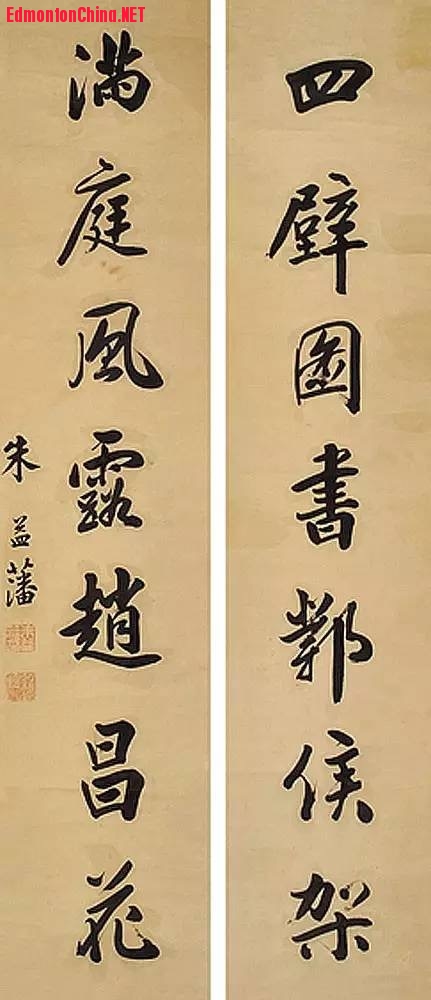 EdmontonChina.NET
四壁圖書鄴侯架
滿庭風露趙昌花
朱益藩